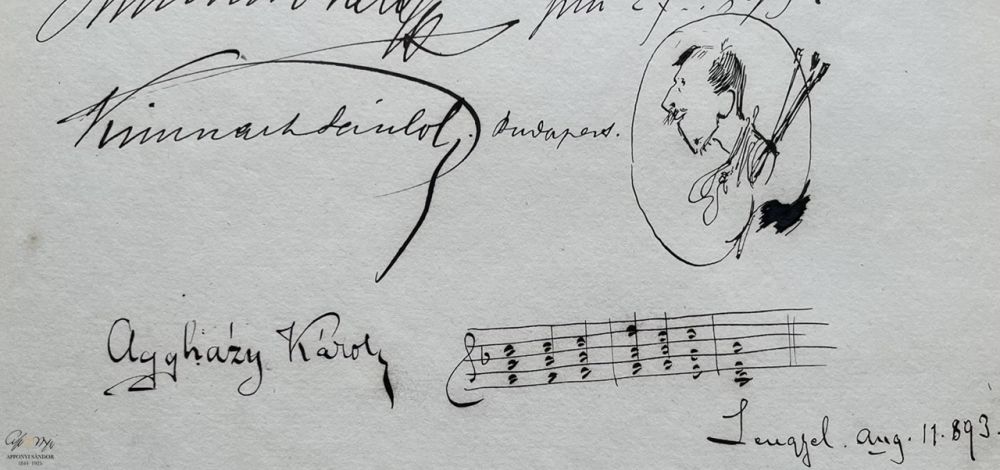 Kimnach László. Budapest.
Aggházy Károly
Lengyel. aug. 11. 893.
APPONYI SÁNDOR
1844-1925